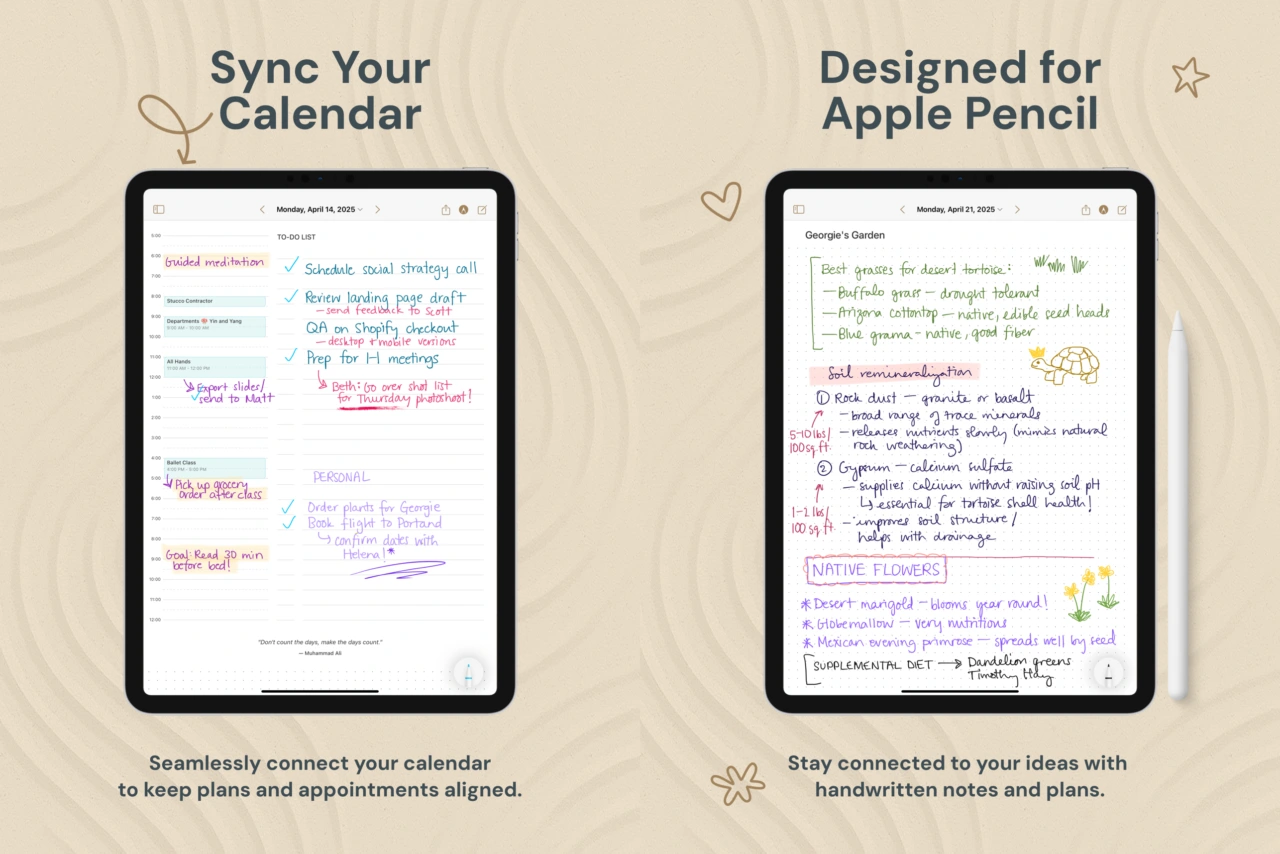 Sync Your
Calendar
Monday, April 14, 2025
TO-DO LIST
5:00
6:00
Guided meditation
7:00
8:00
Stucco Contractor
9:00
Departments 💖 Yin and Yang
9:00 AM - 10:00 AM
10:00
11:00
All Hands
11:00 AM - 12:00 PM
12:00
Export slides/
send to Matt
1:00
2:00
3:00
4:00
Ballet Class
4:00 PM - 5:00 PM
5:00
Pick up grocery
order after class
6:00
7:00
8:00
Goal: Read 30 min
before bed!
9:00
10:00
11:00
12:00
Schedule social strategy call
Review landing page draft
— send feedback to Scott
QA on Shopify checkout
— desktop + mobile versions
Prep for 1-1 meetings
Beth: Go over shot list
for Thursday photoshoot!
PERSONAL
Order plants for Georgie
Book flight to Portand
confirm dates with
Helena!*
"Don't count the days, make the days count."
— Muhammad Ali
Seamlessly connect your calendar
to keep plans and appointments aligned.
Designed for
Apple Pencil
Monday, April 21, 2025
Georgie's Garden
Best grasses for desert tortoise:
— Buffalo grass — drought tolerant
— Arizona cottontop — native, edible seed heads
— Blue grama - native, good fiber
Soil remineralization
① Rock dust — granite or basalt
— broad range of trace minerals
— releases nutrients slowly (mimics natural
rock weathering)
5-10 lbs/
100 sq. ft.
② Gypsum — calcium sulfate
— supplies calcium without raising soil pH
↳ essential for tortoise shell health!
1-2 lbs/
100 sq. ft.
— improves soil structure/
helps with drainage
NATIVE FLOWERS
* Desert marigold — blooms year round!
* Globemallow — very nutritious
* Mexican evening primrose — spreads well by seed
SUPPLEMENTAL DIET → Dandelion greens
Timothy Hay
Stay connected to your ideas with
handwritten notes and plans.